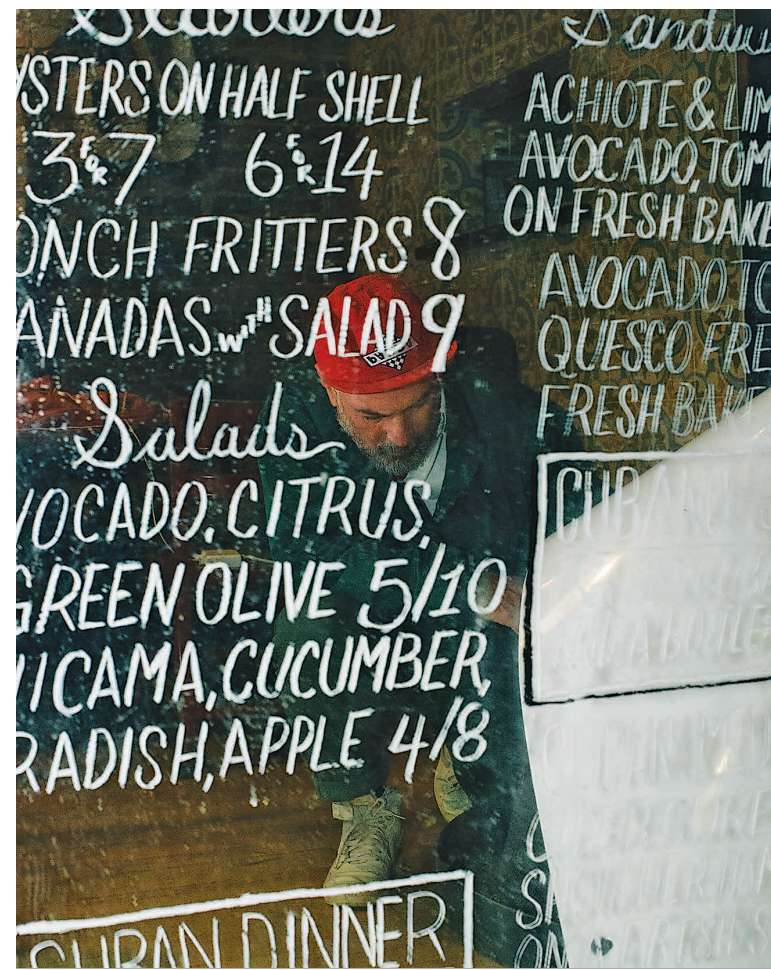 Starters
YSTERS ON HALF SHELL
3 FOR 7 6 FOR 14
ONCH FRITTERS 8
ANADAS WITH SALAD 9
Salads
VOCADO, CITRUS,
GREEN OLIVE 5/10
JICAMA, CUCUMBER,
RADISH, APPLE 4/8
CUBAN DINNER
Sandw
ACHIOTE & LIM
AVOCADO, TOM
ON FRESH BAKE
AVOCADO TO
QUESCO FRE
FRESH BAK
CUBAN
A BOTTLE
ON FRESH S